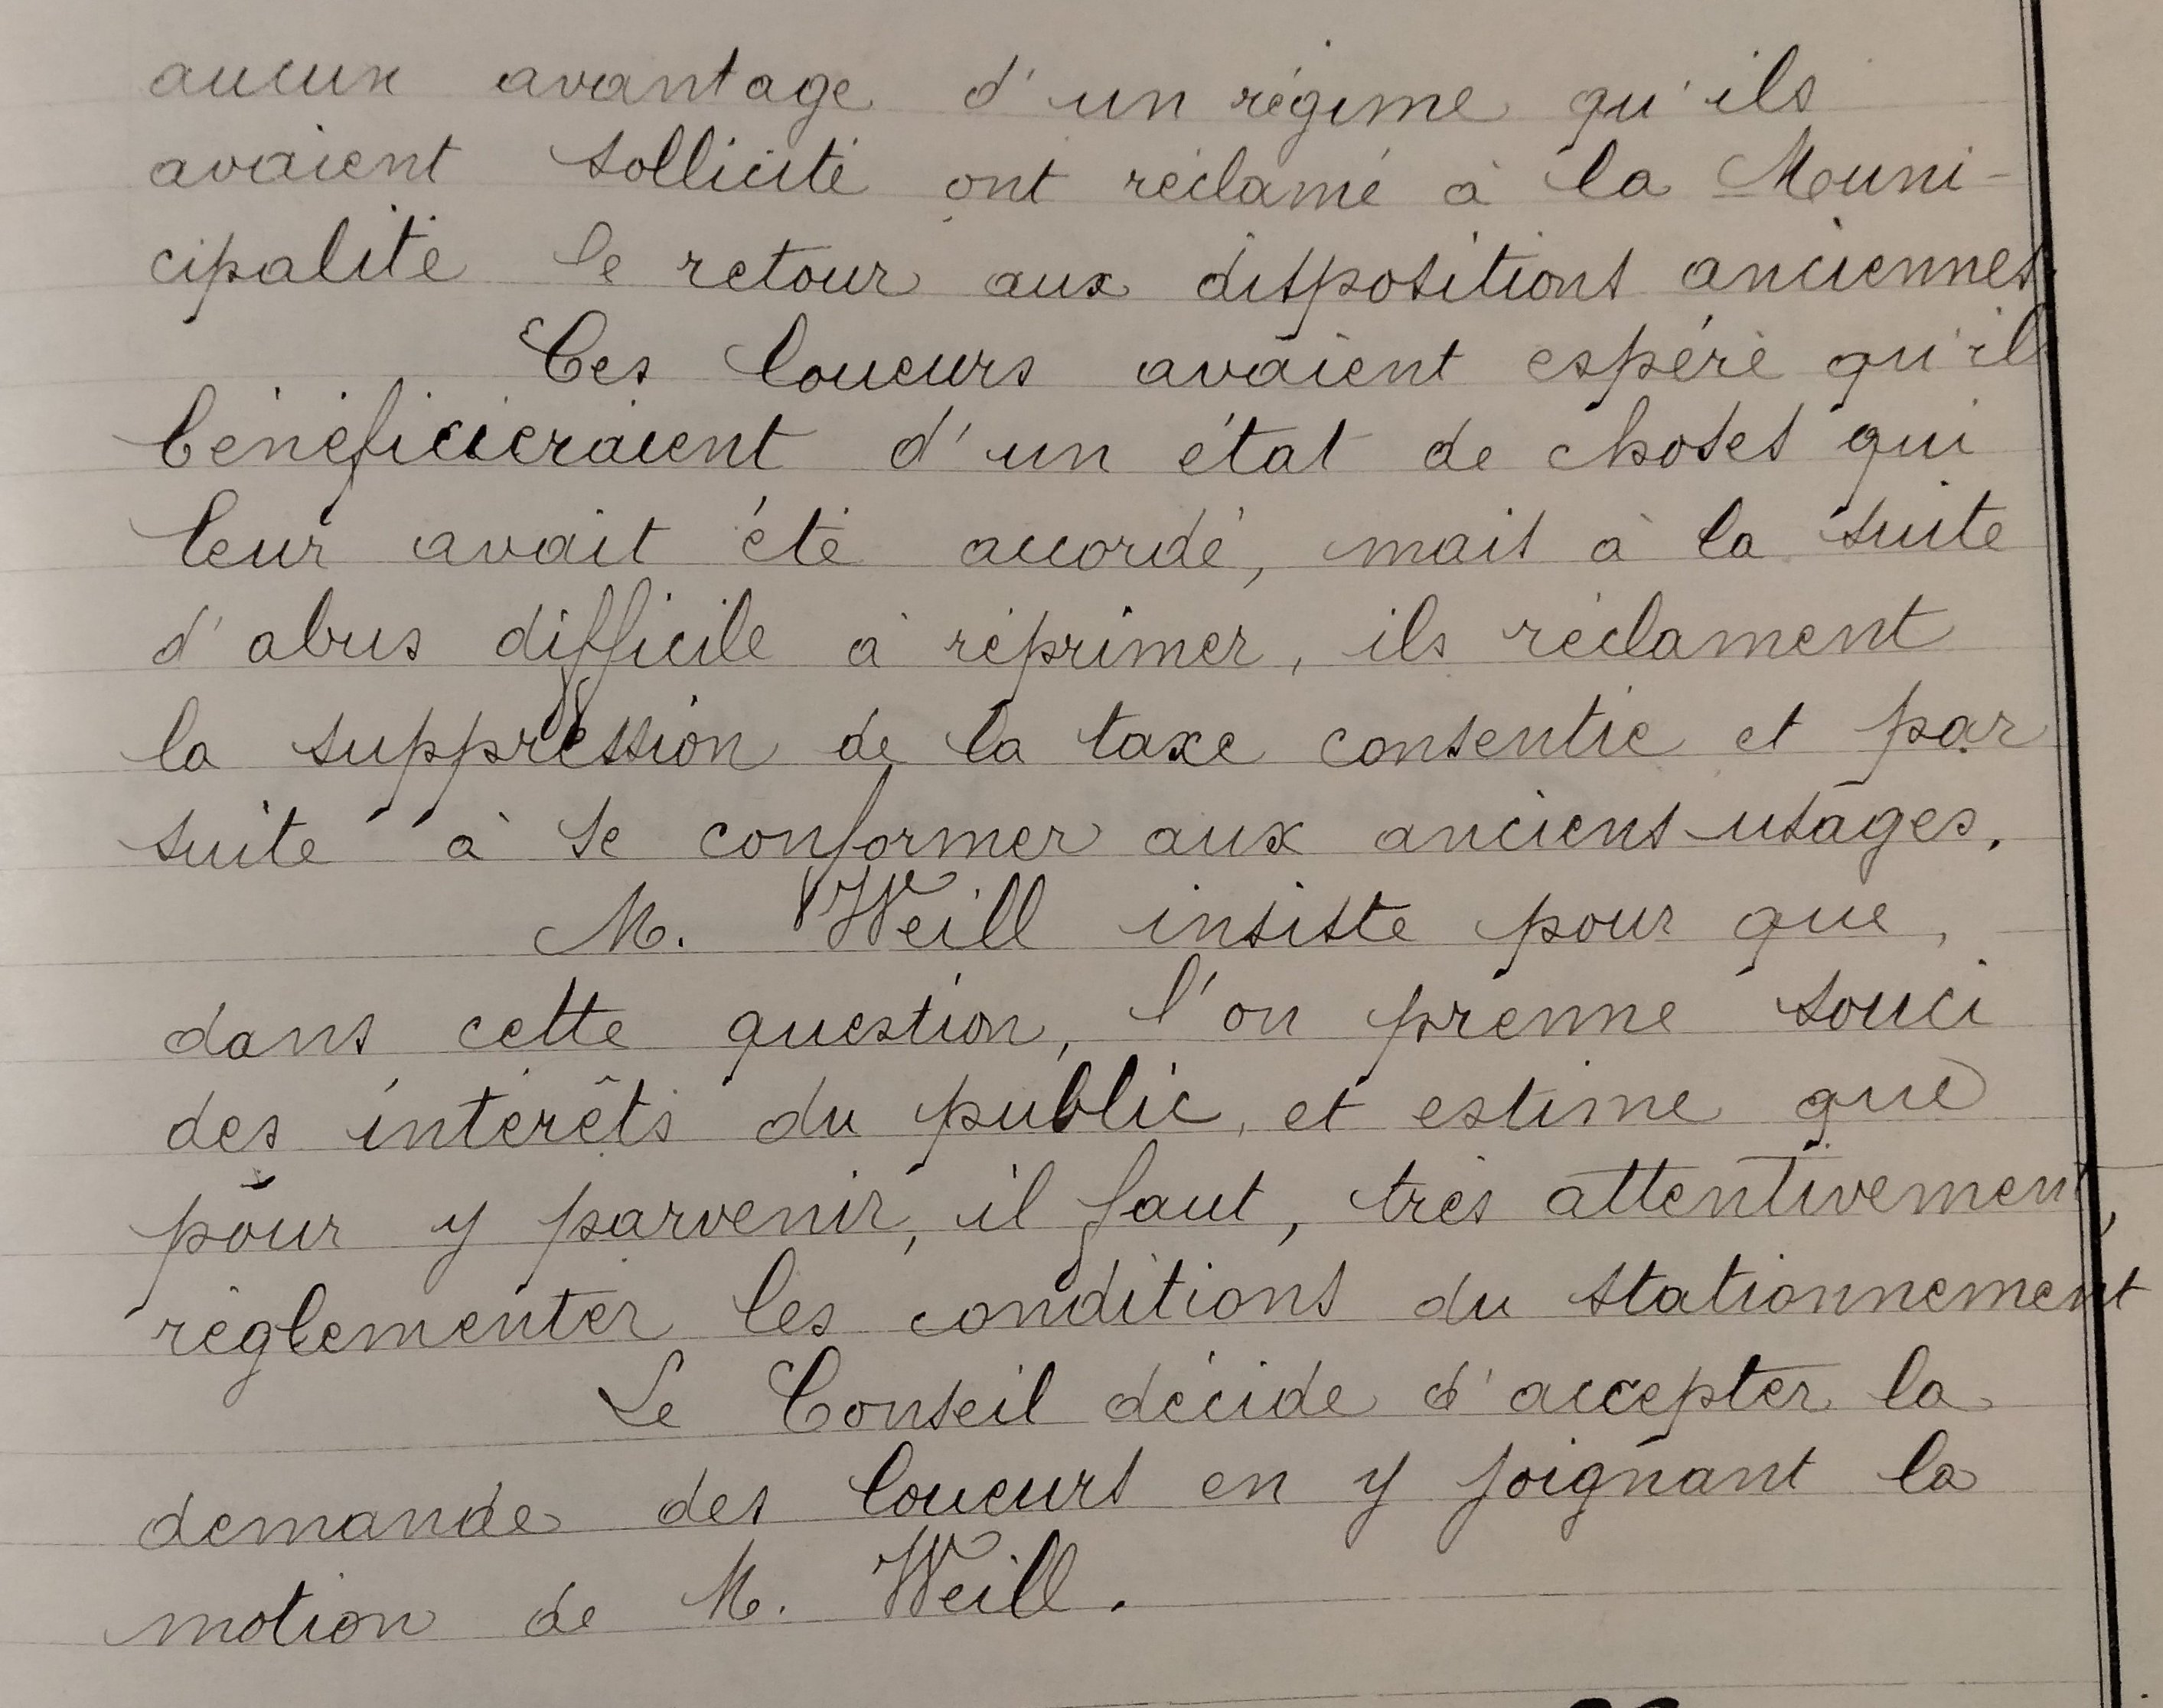 aucun avantage d'un régime qu'ils
avaient sollicité ont réclamé à la Muni-
cipalité le retour aux dispositions anciennes.
Ces loueurs avaient espéré qu'il
bénéficieraient d'un état de choses qui
leur avait été accordé, mais à la suite
d'abus difficile à réprimer, ils réclament
la suppression de la taxe consentie et par
suite à se conformer aux anciens usages.
M. Weill insiste pour que,
dans cette question, l'on prenne souci
des intérêts du public, et estime que
pour y parvenir, il faut, très attentivement,
réglementer les conditions du stationnement
Le Conseil décide d'accepter la
demande des loueurs en y joignant la
motion de M. Weill.